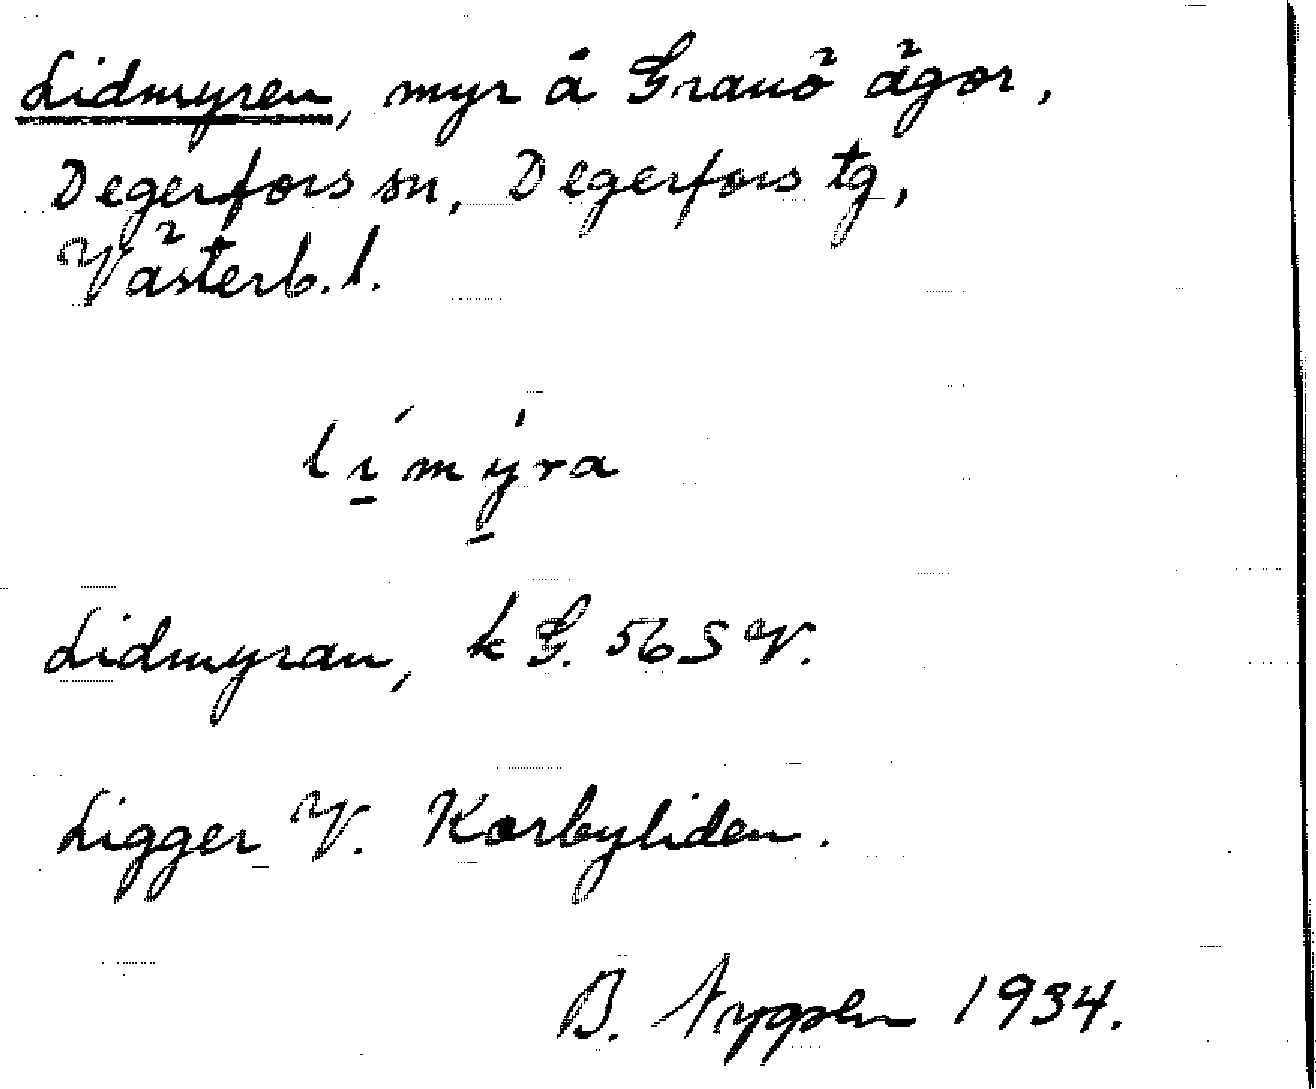 Lidmyren, myr å Granö ägor,
Degerfors sn, Degerfors tg,
Västerb. l.
lí̱mý̱ra
Lidmyran, k G. 56 SV.
Ligger V. Korbyliden.
B. 1934.